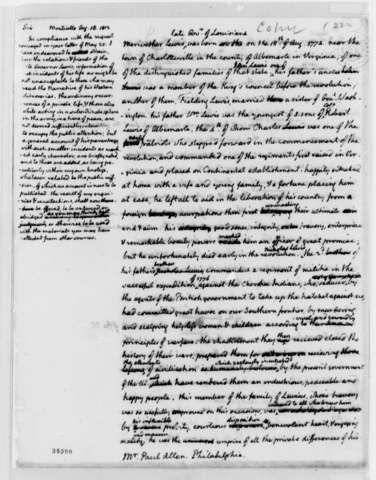 Copy
Sir Monticello Aug. 18. 1813
In compliance with the request
conveyed in your letter of May 25. I
have endeavored to
from the relations & friends of the
late Governor Lewis, information of
such incidents of his life as might be
not unacceptable to those who may
read the Narrative of his Western
discoveries. The ordinary occur-
rences of a private life & those also
while acting in a subordinate sphere
in the army in a time of peace, are
not deemed sufficiently interesting
to occupy the public attention; but
a general account of his parentage
with such smaller incidents as marked
his early character, are briefly noted,
and to these are added, as being pe-
culiarly within my own knowledge,
whatever related to the public mission
of which an account is now to be
published. the result of my enqui-
ries & recollections, shall now
be offered, to be enlarged or
abridged as you may think best
or otherwise to be used
with the materials you may have
collected from other sources.
late Gov^r. of Louisiana
Meriwether Lewis, was born on the 18th of Aug. 1774. near the
town of Charlottesville in the county of Albemarle in Virginia, of one
of the distinguished families of that state. John Lewis one of his father's uncles
was a member of the King's council before the revolution,
another of them Fielding Lewis, married a sister of Gen^l. Wash-
ington. his father W^m. Lewis was the youngest of 5. sons of Robert
Lewis of Albemarle, the 4th. of whom Charles was one of the
early patriots who stepped forward in the commencement of the
revolution, and commanded one of the regiments first raised in Vir-
ginia and placed on Continental establishment. happily situated
at home with a wife and young family, & a fortune placing him
at ease, he left all to aid in the liberation of his country from
foreign usurpations then first their ultimate end
and aim. his good sense, integrity, bravery, enterprize
& remarkable bodily powers marked him an officer of great promise;
but he unfortunately died early in the revolution. Nicholas Lewis the 2^d. of
his father's brothers commanded a regiment of militia in the
successful expedition of 1776 against the Cherokee Indians, who, seduced by
the agents of the British government to take up the hatchet against us,
had committed great havoc on our Southern frontier, by murdering
and scalping helpless women & children according to their cruel and cowardly
principles of warfare. the chastisement they then recieved closed the
history of their wars, prepared them for receiving
the elements of civilisation which zealously inculcated by the present government
of the U.S. have rendered them an industrious, peaceable and
happy people. this member of the family of Lewises, whose bravery
was so usefully proved on this occasion, was endeared to all who knew him
by his inflexible probity, courteous disposition, benevolent heart, & engaging
modesty & manners. he was the umpire of all the private differences of his
M^r. Paul Allen. Philadelphia.